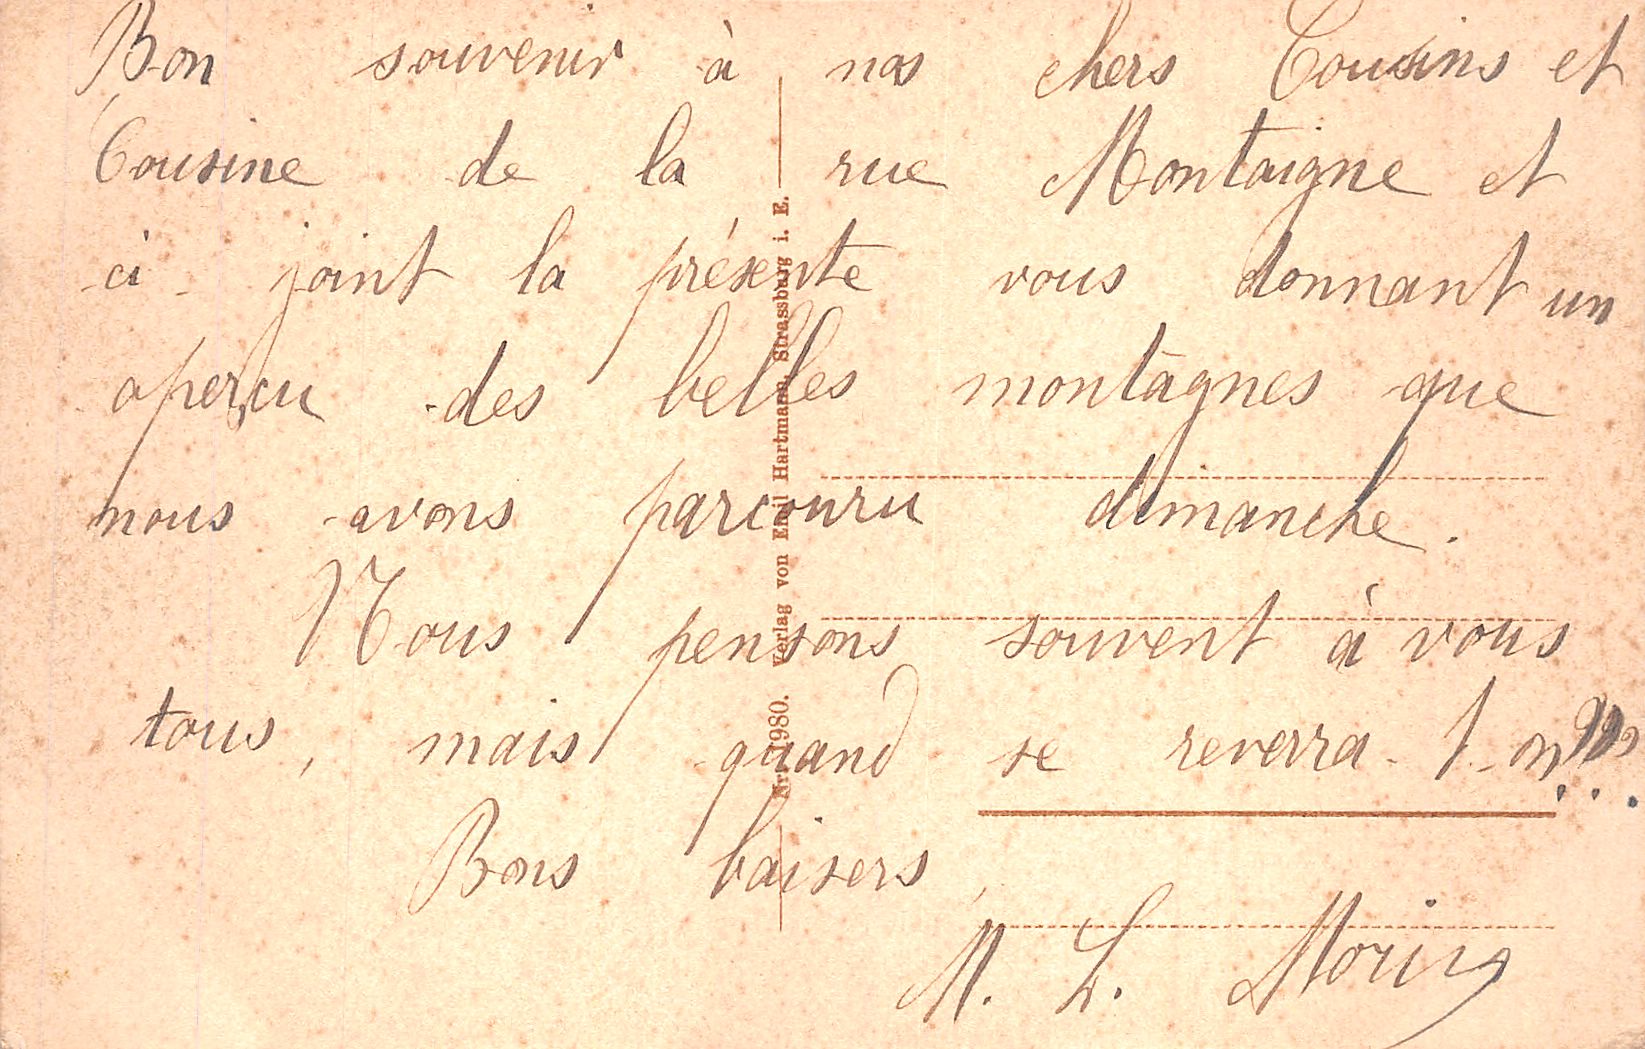 Bon souvenir à nos chers Cousins et
Cousine de la rue Montaigne et
ci-joint la présente vous donnant un
aperçu des belles montagnes que
nous avons parcouru dimanche.
Nous pensons souvent à vous
tous, mais quand se reverra-t-on???
Bons baisers,
M. L. Morin
Nr. 1980. Verlag von Emil Hartmann, Strassburg i. E.